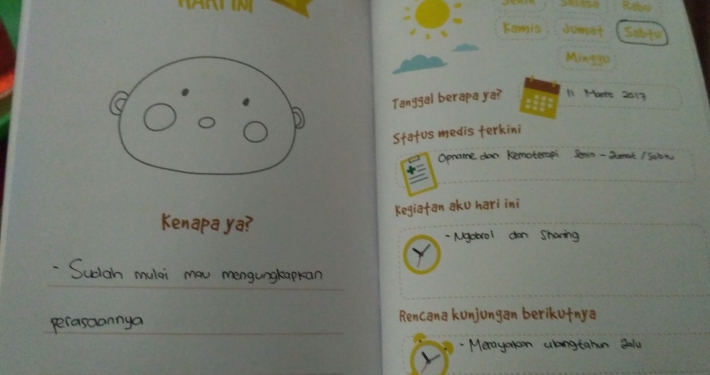 HARI INI
Kenapa ya?
- Sudah mulai mau mengungkapkan
perasaannya
Senin Selasa Rabu
Kamis Jumat Sabtu
Minggu
Tanggal berapa ya?
11 Maret 2017
Status medis terkini
Opname dan Kemoterapi Senin - Jumat / Sabtu
Kegiatan aku hari ini
- Ngobrol dan Sharing
Rencana kunjungan berikutnya
- Merayakan ulangtahun